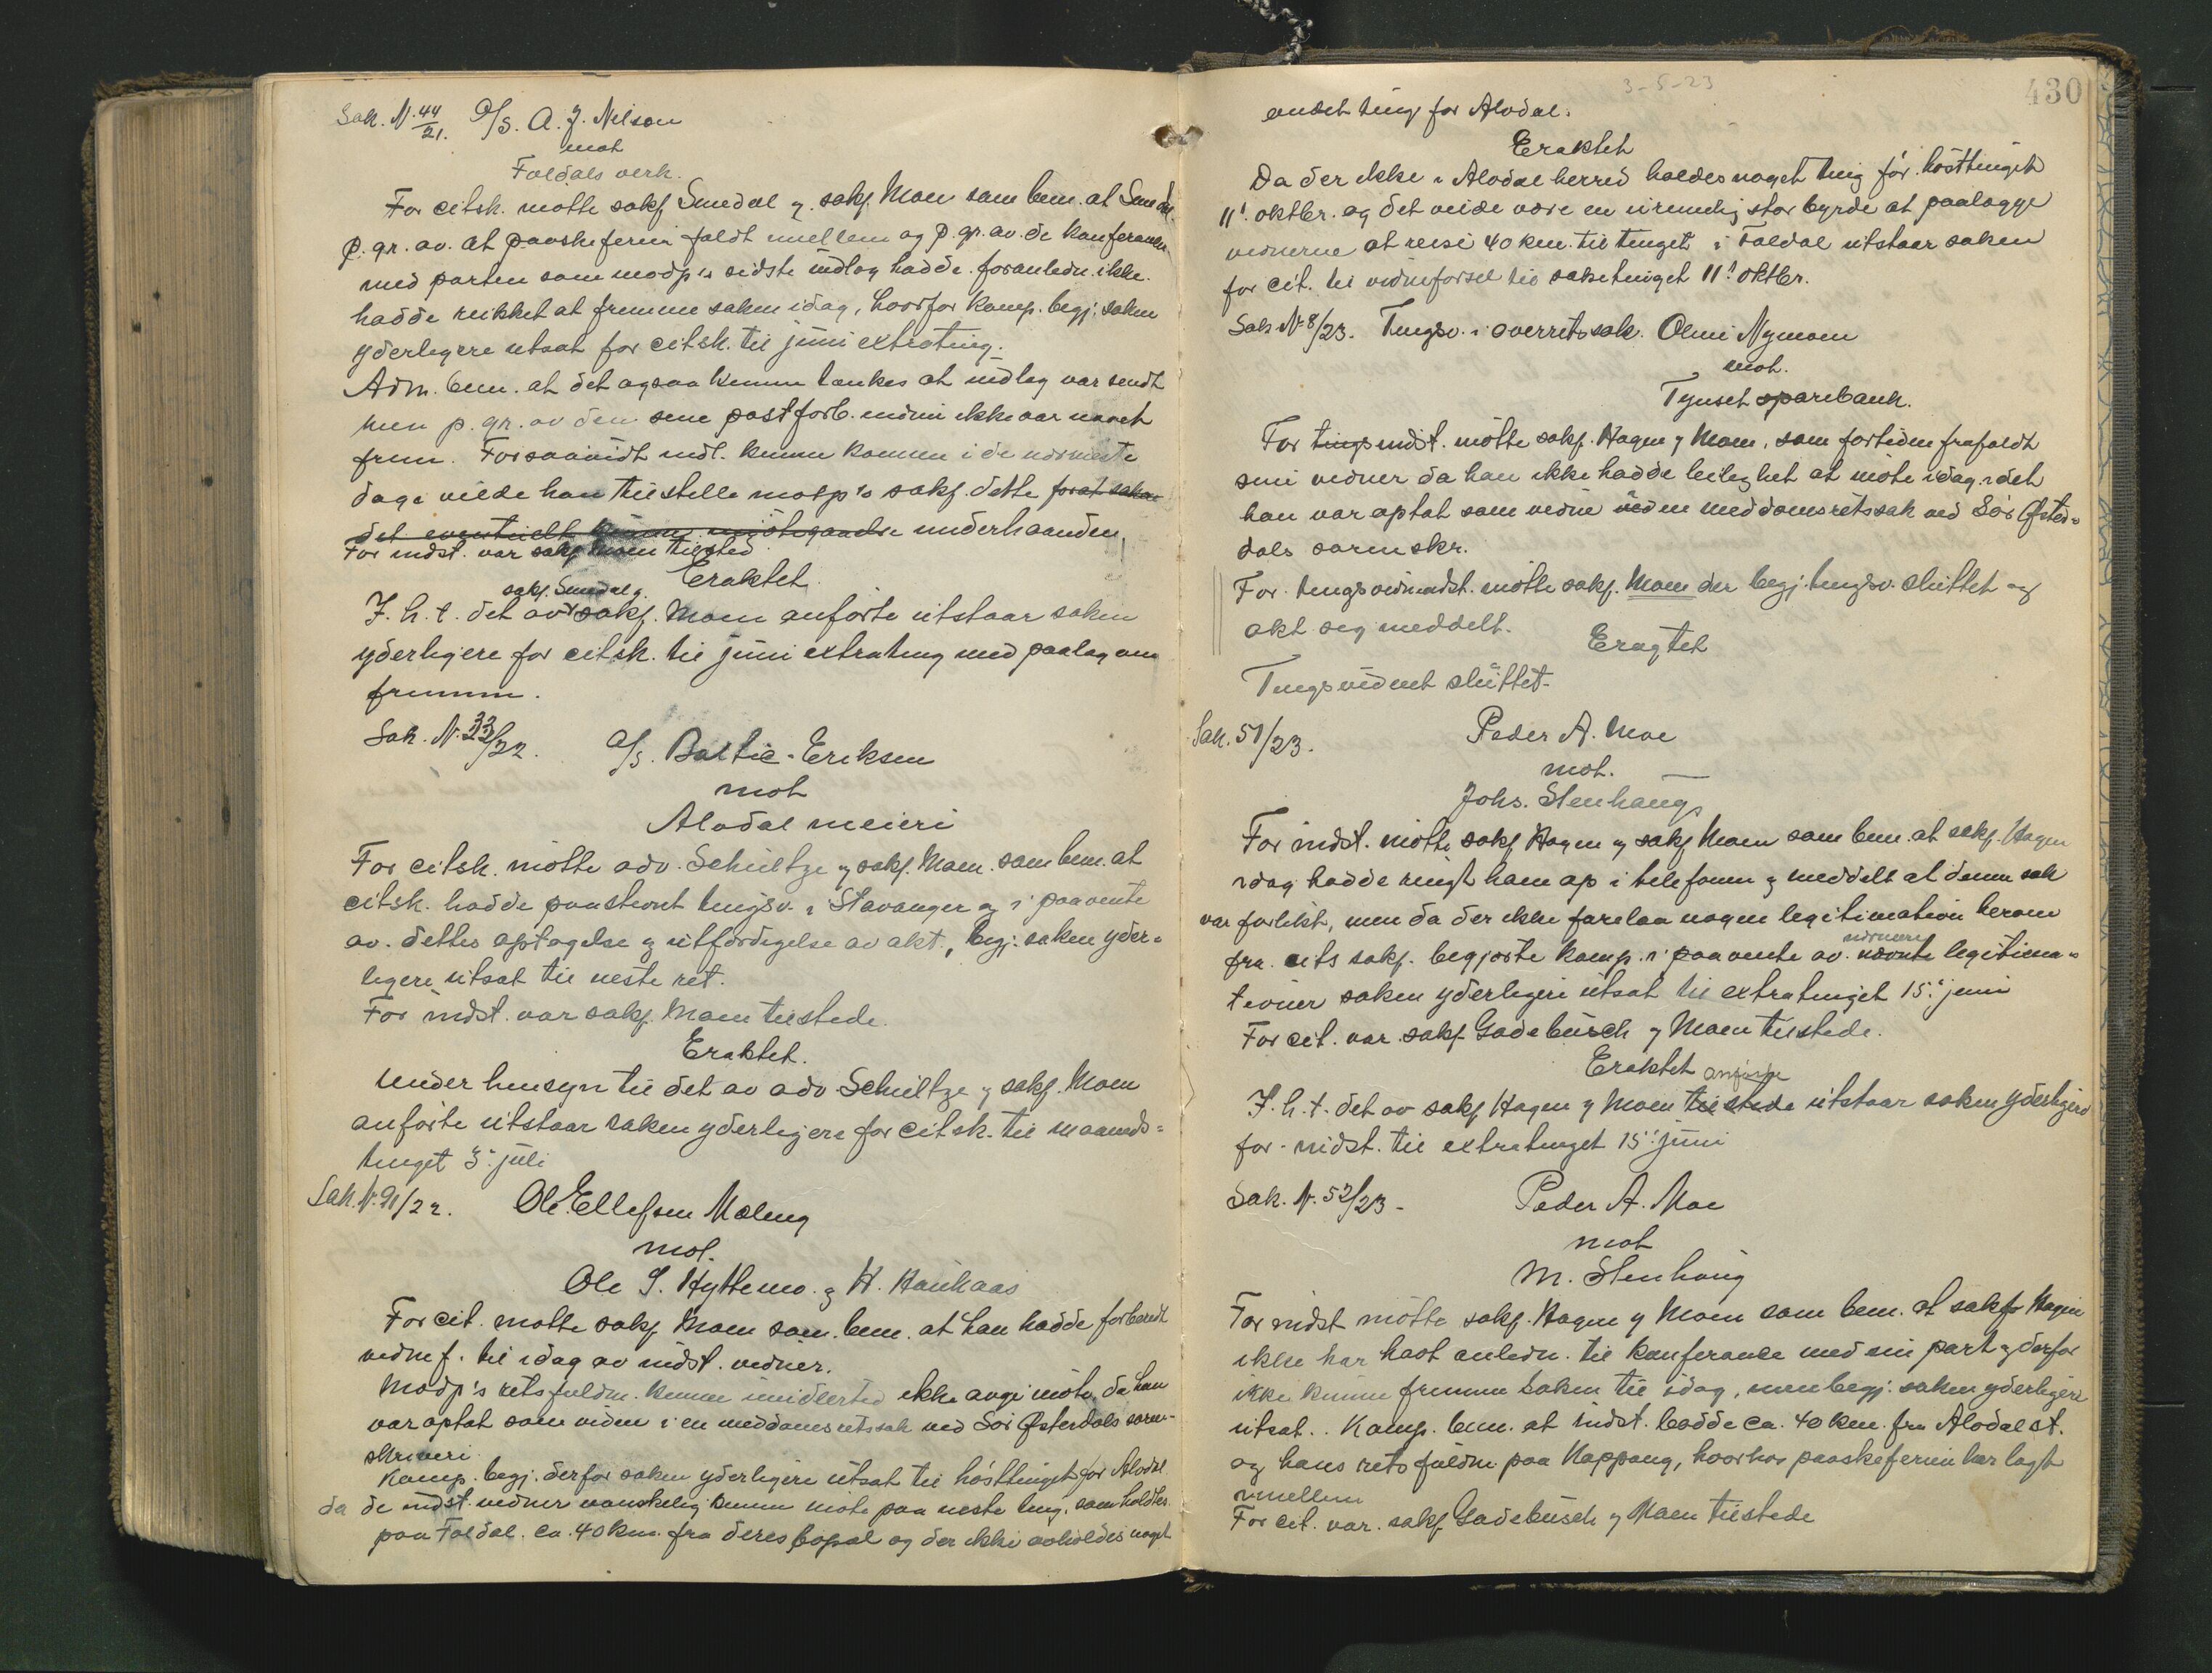 Sak. N. 44/21. A/S. A. J. Nilson
mot
Foldals verk.
For citsk. møtte sakf Smedal g. sakf. Moen som bem. at Smedal
p. gr. av. at paaskeferien faldt imellem og p. gr. av. de konferanser
med parten som modp's sidste indlæg hadde foranledn. ikke
hadde rukket at fremme saken idag, hvorfor komp. begj. saken
yderligere utsat for citsk. til juni extrating.
Adm. bem. at det ogsaa kunne tænkes at indlæg var sendt
men p. gr. av den sene postforb. endnu ikke var naaet
frem. Forsaavidt indl. kunne komme i de nærmeste
dage vilde han tilstelle modp's sakf. dette for at saken
det eventuelt kunne imøtegaaelse underhaanden.
For indst. var sakf Moen tilsted
Eraktet
sakf. Smedal g.
I. h. t. det av sakf. Moen anførte utstaar saken
yderligere for citsk. til juni extrating med paalæg om
fremme.
Sak. N. 33/22. A/S. Baltic-Eriksen
mot
Alvdal meieri
For citsk. møtte adv. Schultze g sakf. Moen. som bem. at
citsk. hadde paastevnt tingsv. i Stavanger og i paavente
av. dettes optagelse g utfærdigelse av akt., begj. saken yder-
ligere utsat til neste ret.
For indst. var sakf. Moen tilstede.
Eraktet.
Under hensyn til det av adv Schultze g sakf. Moen
anførte utstaar saken yderligere for citsk. til maaneds-
tinget 3' juli
Sak. N. 91/22. Ole Ellefsen Mæling
mot.
Ole S. Hyttemo. g H. Haukaas
For cit. møtte sakf Moen som bem. at han hadde forberedt
vidnef. til idag av indst. vidner.
Modp's retsfuldm. kunne imidlertid ikke avgi møte, da han
var optat som viden i en meddomsretssak ved Sør Østerdals soren-
skriveri
Komp. begj. derfor saken yderligere utsat til høsttinget for Alvdal
da de indst. vidner vanskelig kunne møte paa neste ting. som holdtes
paa Foldal. ca. 40 km. fra deres bopæl og der ikke avholdes noget
3-5-23
430
andet ting for Alvdal.
Eraktet
Da der ikke i Alvdal herred holdes noget ting før høsttinget
11' oktbr. og det vilde være en urimelig stor byrde at paalægge
vidnerne at reise 40 km. til tinget i Foldal utstaar saken
for cit. til vidneførsel til saketinget 11' oktbr.
Sak N. 8/23. Tingsv. i overretssak. Oline Nymoen
mot.
Tynset sparebank.
For tings indst. møtte sakf. Hagen g Moen, som fortiden frafaldt
sine vidner da han ikke hadde leilighet at møte idag idet
han var optat som vidne ved en meddomsretssak ved Sør Østed-
dals sorenskr.
For tingsvidneindst. møtte sakf. Moen der begj. tingsv. sluttet og
akt seg meddelt.
Eragtet
Tingsvidnet sluttet-
Sak. 51/23. Peder A. Moe
mot.
Johs. Stenhaug
For indst. møtte sakf Hagen g sakf Moen som bem. at sakf. Hagen
idag hadde ringt ham op i telefonen g meddelt at denne sak
var forlikt, men da der ikke forelaa nogen legitimation herom
fra cits sakf. begjærte komp. i paavente av. nævnte nærmere legitima-
tioner saken yderligere utsat til extratinget 15' juni
For cit. var sakf Gadebusch g Moen tilstede.
Eraktet
anførte
I. h. t. det av sakf Hagen g Moen tilstede utstaar saken yderligere
for indst. til extratinget 15' juni
Sak. N. 52/23- Peder A. Moe
mot
M. Stenhaug
For indst møtte sakf. Hagen g Moen som bem. at sakfr Hagen
ikke har havt anledn. til konferance med sin part g derfor
ikke kunne fremme saken til idag, men begj. saken yderligere
utsat. . Komp. bem. at indst. bodde ca. 40 km. fra Alvdal st.
og hans retsfuldm paa Koppang, hvorhos paaskeferien har lagt
imellem
For cit. var. sakf Gadebusch g Moen tilstede